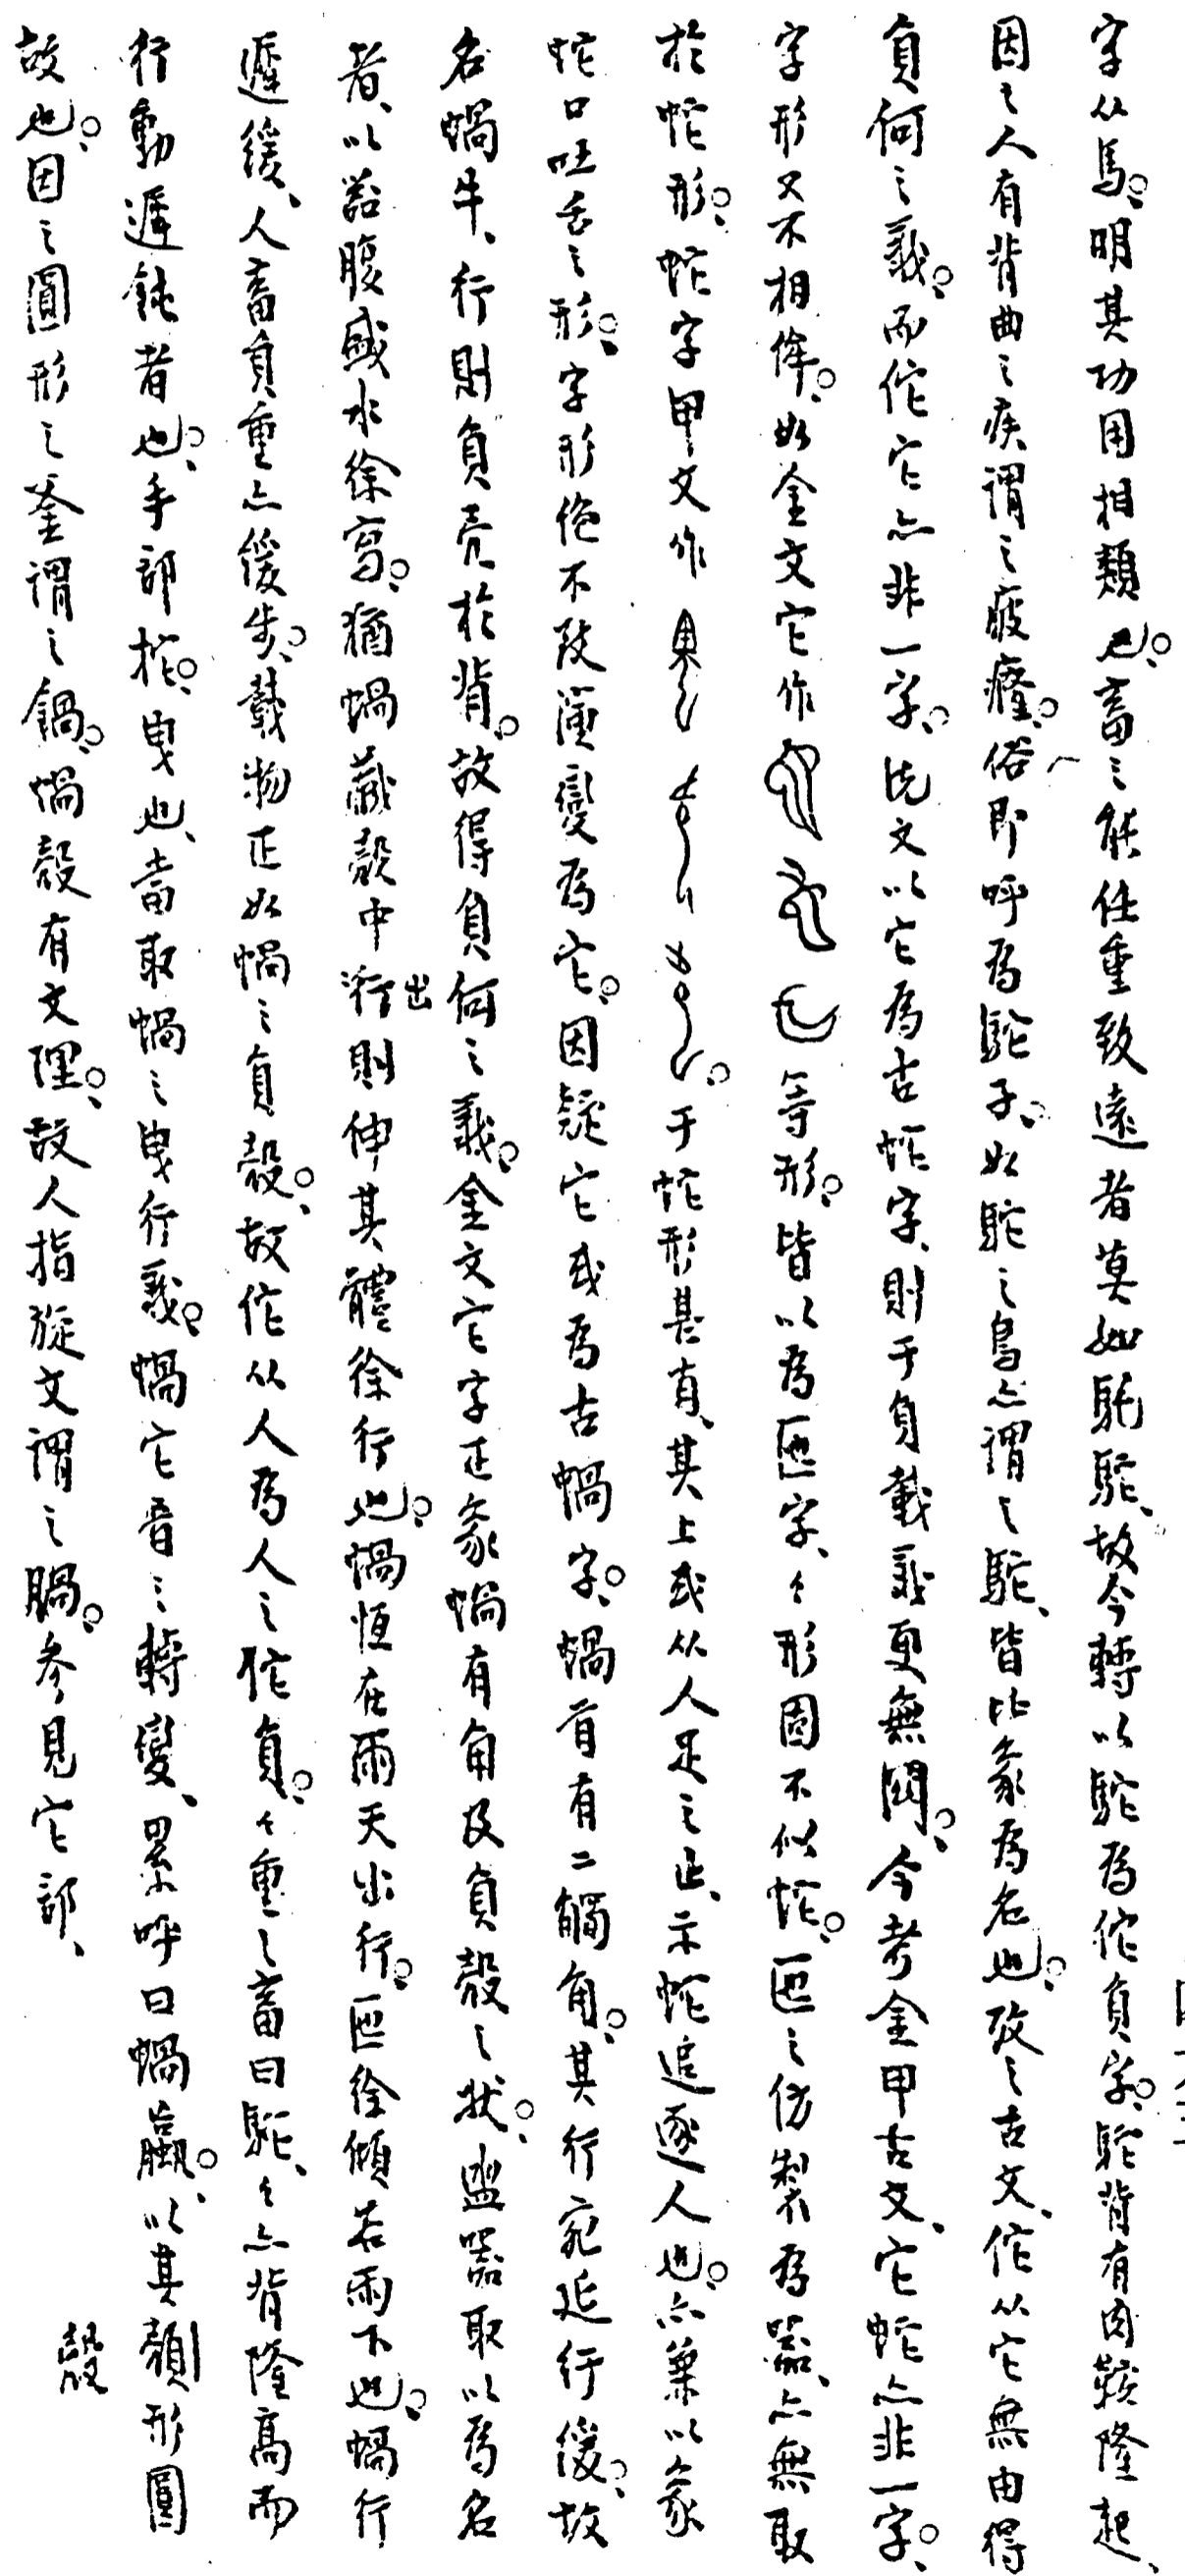 字从馬。明其功用相類也。畜之能任重致遠者莫如駝駝、故今轉以駝為佗負字。駝背有肉鞍隆起、
因之人有背曲之疾謂之疲癃。俗即呼為駝子。如駝之鳥亦謂之駝、皆比象為名也。攷之古文、佗从它無由得
負何之義。而佗它亦非一字。說文以它為古蛇字、則于負載義更無關。今考金甲古文、它蛇亦非一字。
字形又不相侔。如金文它作 等形。皆以為匜字、々形固不似蛇。匜之仿製為器、亦無取
於蛇形。蛇字甲文作 。于蛇形甚肖、其上或从人足之止、示蛇追逐人也。亦兼以象
蛇口吐舌之形。字形絕不致演變為它。因疑它或為古蝸字。蝸首有二觸角。其行宛延行緩。故
名蝸牛、行則負壳於背。故得負何之義。金文它字正象蝸有角及負殼之狀。盥器取以為名
者、以器腹盛水徐寫。猶蝸藏殼中出行則伸其體徐行也。蝸恒在雨天出行。匜徐傾若雨下也。蝸行
遲緩、人畜負重亦緩步。載物正如蝸之負殼。故佗从人為人之佗負。々重之畜曰駝、々亦背隆高而
行動遲鈍者也、手部拕。曳也、當取蝸之曳行義。蝸它音之轉變、累呼曰蝸蠃。以其顏形圓
殼
故也。因之圓形之釜謂之鍋。蝸殼有文理。故人指旋文謂之腡。參見它部、